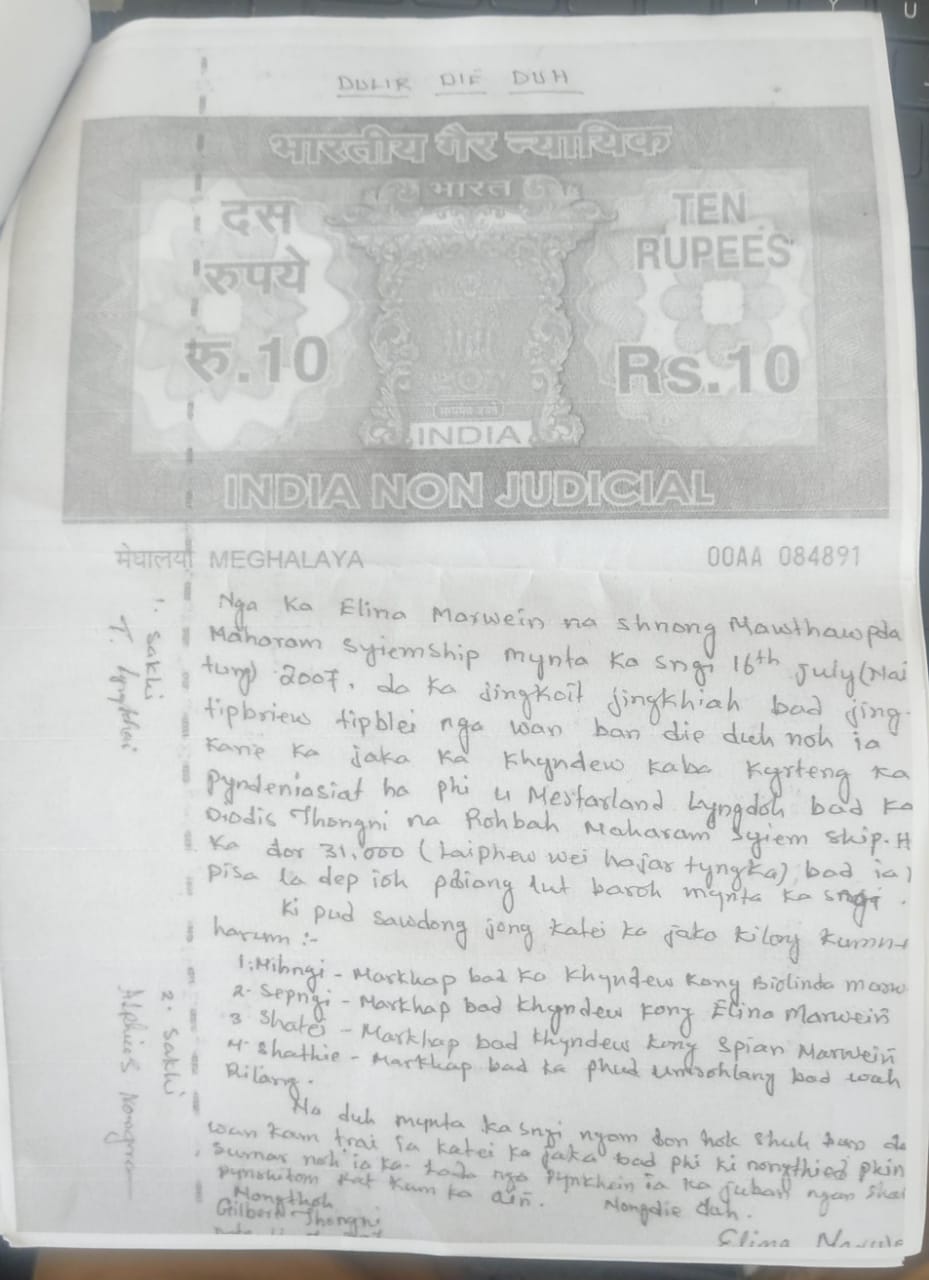 DULIR DIE DUH
भारतीय गैर न्यायिक
भारत
दस
रुपये
रु.10
TEN
RUPEES
Rs.10
सत्यमेव जयते
INDIA
INDIA NON JUDICIAL
मेघालय MEGHALAYA
00AA 084891
Nga Ka Elina Marwein na shnong Mawthawpda
Maharam syiemship mynta ka sngi 16th July (Nai
tung) 2007, da ka jingkoit jingkhiah bad jing-
tipbriew tipblei nga wan ban die duh noh ia
Kane ka jaka ka Khyndew kaba kyrteng ka
Pyndeniasiat ha phi u Mestarland Lyngdoh bad ka
Diodis Thongni na Rohbah Maharam Syiem ship. H
Ka dor 31,000 (Laiphew wei hajar tyngka) bad ia
pisa la dep ioh pdiang lut baroh mynta ka sngi.
Ki pud sawdong jong katei ka jaka kilong kumne
harum :-
1. Mihngi - Markhap bad ka Khyndew Kong Biolinda marw
2. Sepngi - Markhap bad Khyndew Kong Elina Marwein
3 Shatei - Markhap bad Khyndew Kong Spian Marwein
4. Shathie - Markhap bad ka phud umsohlang bad wah
Rilang.
Na duh mynta ka sngi ngam don hok shuh ban da
wan kam trai ia katei ka jaka bad phi ki nongthied pkin
sumar noh ia ka. Lada nga pynkhein ia ka jubab ngan shah
pynshitom kat kum ka aiñ.
Nongdie duh.
Nongthoh
Gilbert Thongni
Elina
1. Sakhi
T. Lyngkhoi
2. Sakhi
Alphius